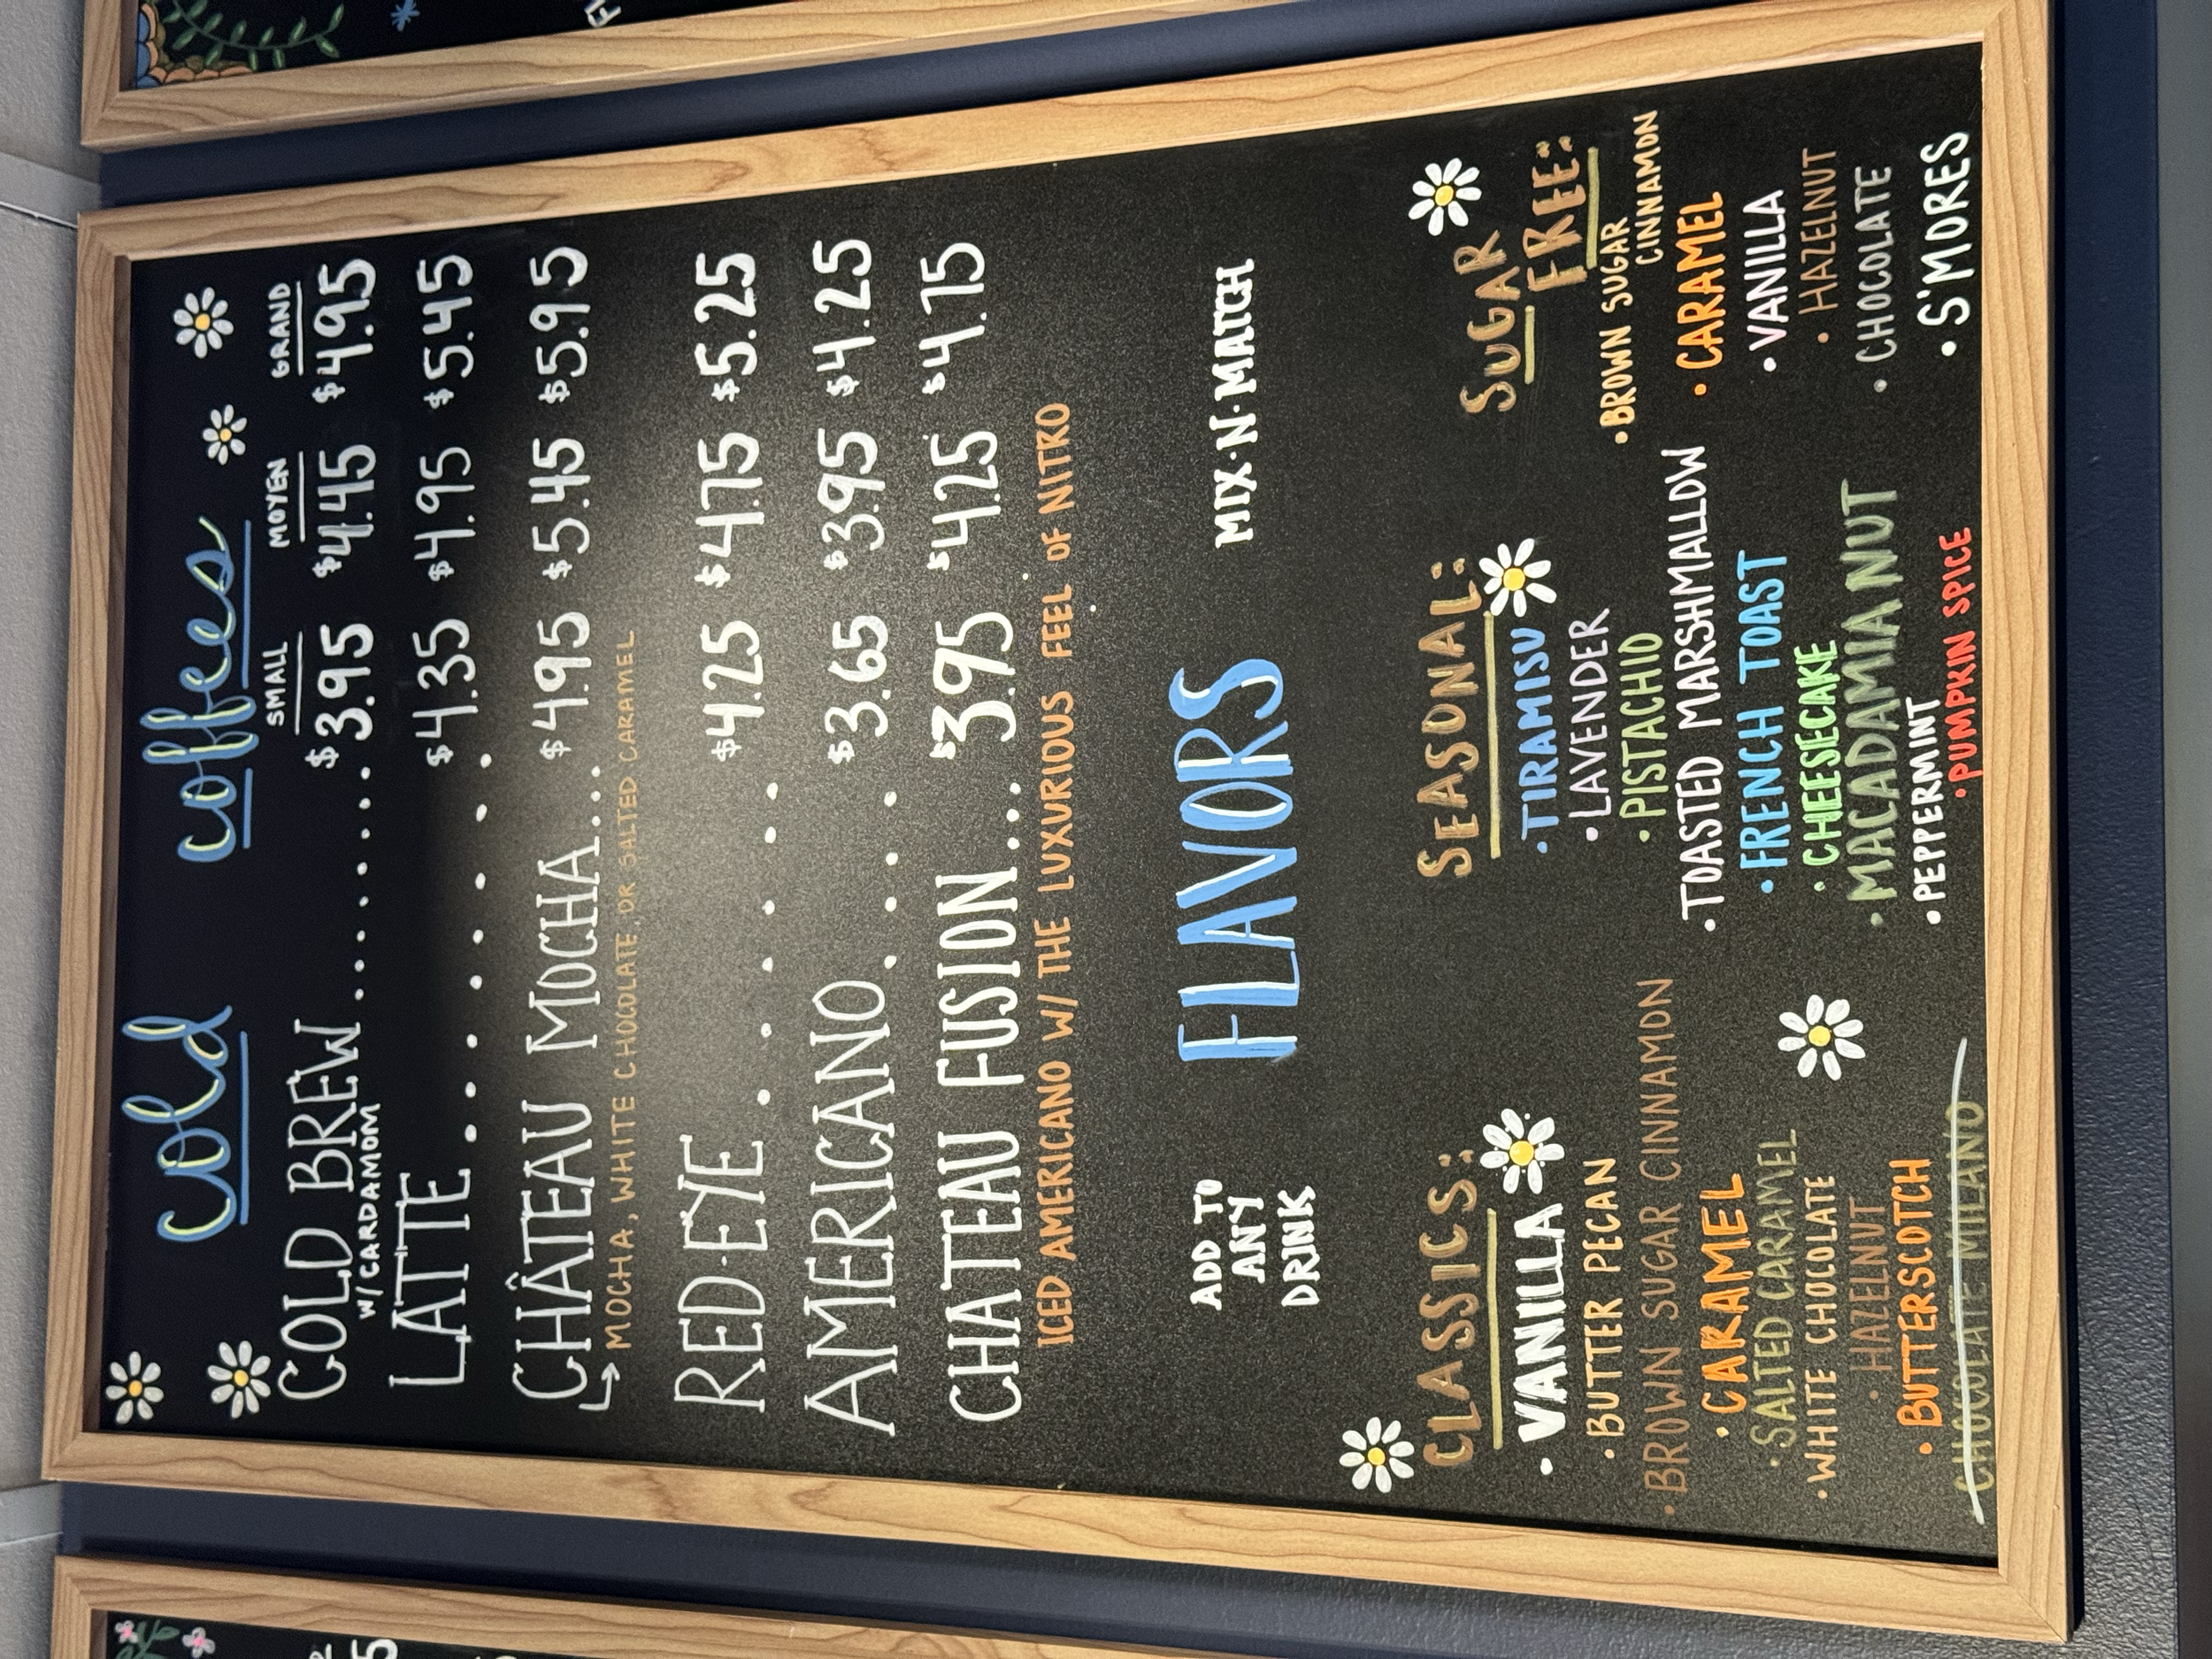 Cold coffees
SMALL MOYEN GRAND
COLD BREW ......... $3.95 $4.45 $4.95
W/CARDAMOM
LATTE ........ $4.35 $4.95 $5.45
CHÂTEAU MOCHA.... $4.95 $5.45 $5.95
↳ MOCHA, WHITE CHOCOLATE, OR SALTED CARAMEL
RED·EYE ...... $4.25 $4.75 $5.25
AMERICANO.... $3.65 $3.95 $4.25
CHATEAU FUSION.... $3.95 $4.25 $4.75
ICED AMERICANO W/ THE LUXURIOUS FEEL OF NITRO
ADD TO
ANY
DRINK
FLAVORS
MIX·N·MATCH
CLASSICS:
• VANILLA
• BUTTER PECAN
• BROWN SUGAR CINNAMON
• CARAMEL
• SALTED CARAMEL
• WHITE CHOCOLATE
• HAZELNUT
• BUTTERSCOTCH
CHOCOLATE MILANO
SEASONAL:
• TIRAMISU
• LAVENDER
• PISTACHIO
• TOASTED MARSHMALLOW
• FRENCH TOAST
• CHEESECAKE
• MACADAMIA NUT
• PEPPERMINT
• PUMPKIN SPICE
SUGAR
FREE:
• BROWN SUGAR
CINNAMON
• CARAMEL
• VANILLA
• HAZELNUT
• CHOCOLATE
• S'MORES